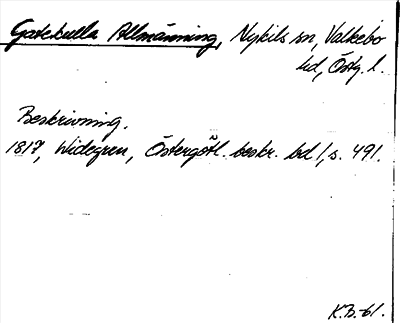 Gatekulla Allmänning, Nykils sn, Valkebo
hd, Östg. l.
Beskrivning.
1817, Widegren, Östergötl. beskr. bd 1, s. 491.
K.B.-61.